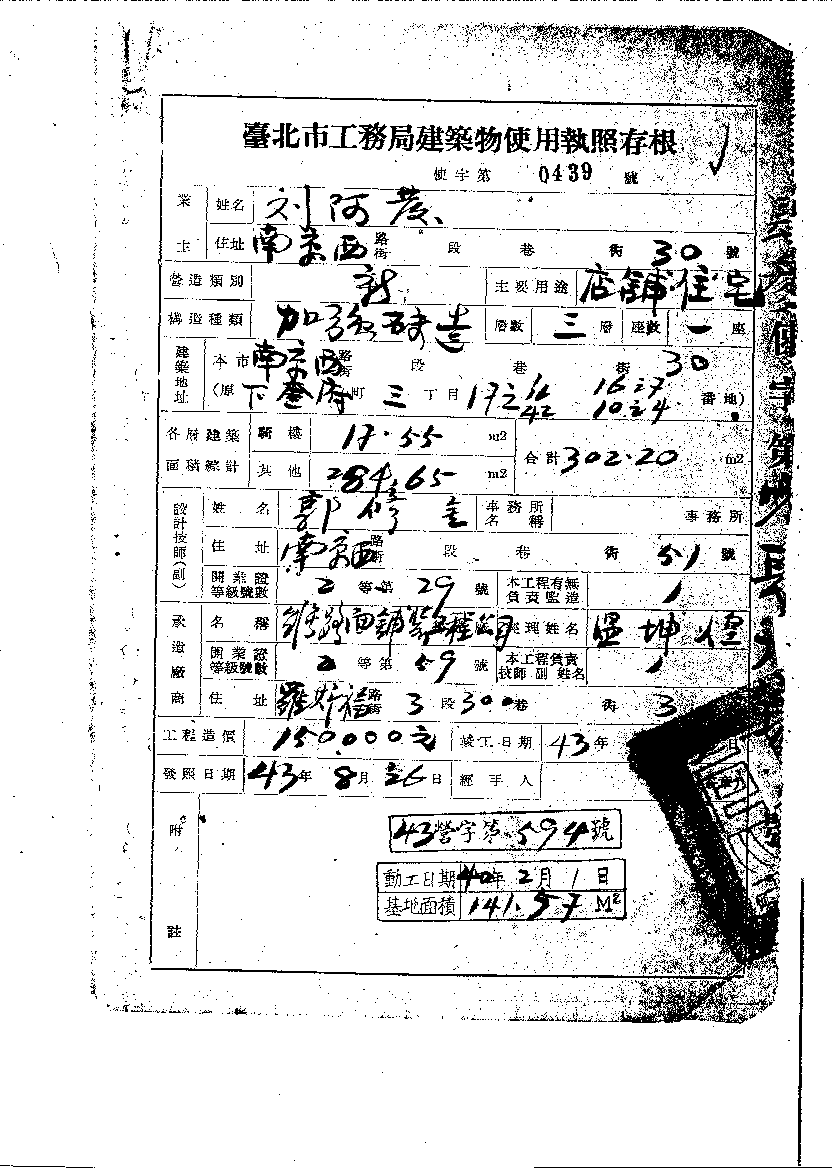 臺北市工務局建築物使用執照存根
使字第 0439 號
業主 姓名 刘阿
住址 南京西 路街 段 巷 街 30 號
營造類別 新 主要用途 店舖住宅
構造種類 加強磚造 層數 三 層 座數 一 座
建築地址 本市 南京西 路街 段 巷 街 30
(原 下奎府 町 三 丁目 17之 番地)
各層建築面積總計 騎樓 17.55 m2 合計 302.20 m2
其他 284.65 m2
設計技師(副) 姓名 郭 金 事務所名稱 事務所
住址 南京西 路街 段 巷 街 51 號
開業證等級號數 2 等第 29 號 本工程有無負責監造
承造廠商 名稱 經理姓名 溫坤煌
開業證等級號數 2 等第 59 號 本工程負責技師副姓名
住址 羅斯福 路街 3 段 300 巷 街 3
工程造價 150.000元 竣工日期 43年 日
發照日期 43年 8月 26日 經手人
附註
43營字第594號
動工日期 年2月1日
基地面積 141.57 M²